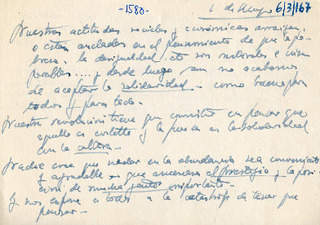 -1580-
1 de Mayo 6/3/167
Nuestras actitudes sociales y económicas arraigan,
o están ancladas en el pensamiento de que la po-
breza, la desigualdad etc son naturales e im-
y desde luego aun no acabamos
de aceptar la solidaridad - como buena para
todos y para todo.
Nuestra revolución tiene que consistir en pensar que
aquello es evitable y la
con la cultura -
Nadie crea que nadar en la abundancia sea conveniente
y agradable es que el prestigio y la
de mucha gente importante -
Y nos espera a todos la catástrofe de tener que
pensar -